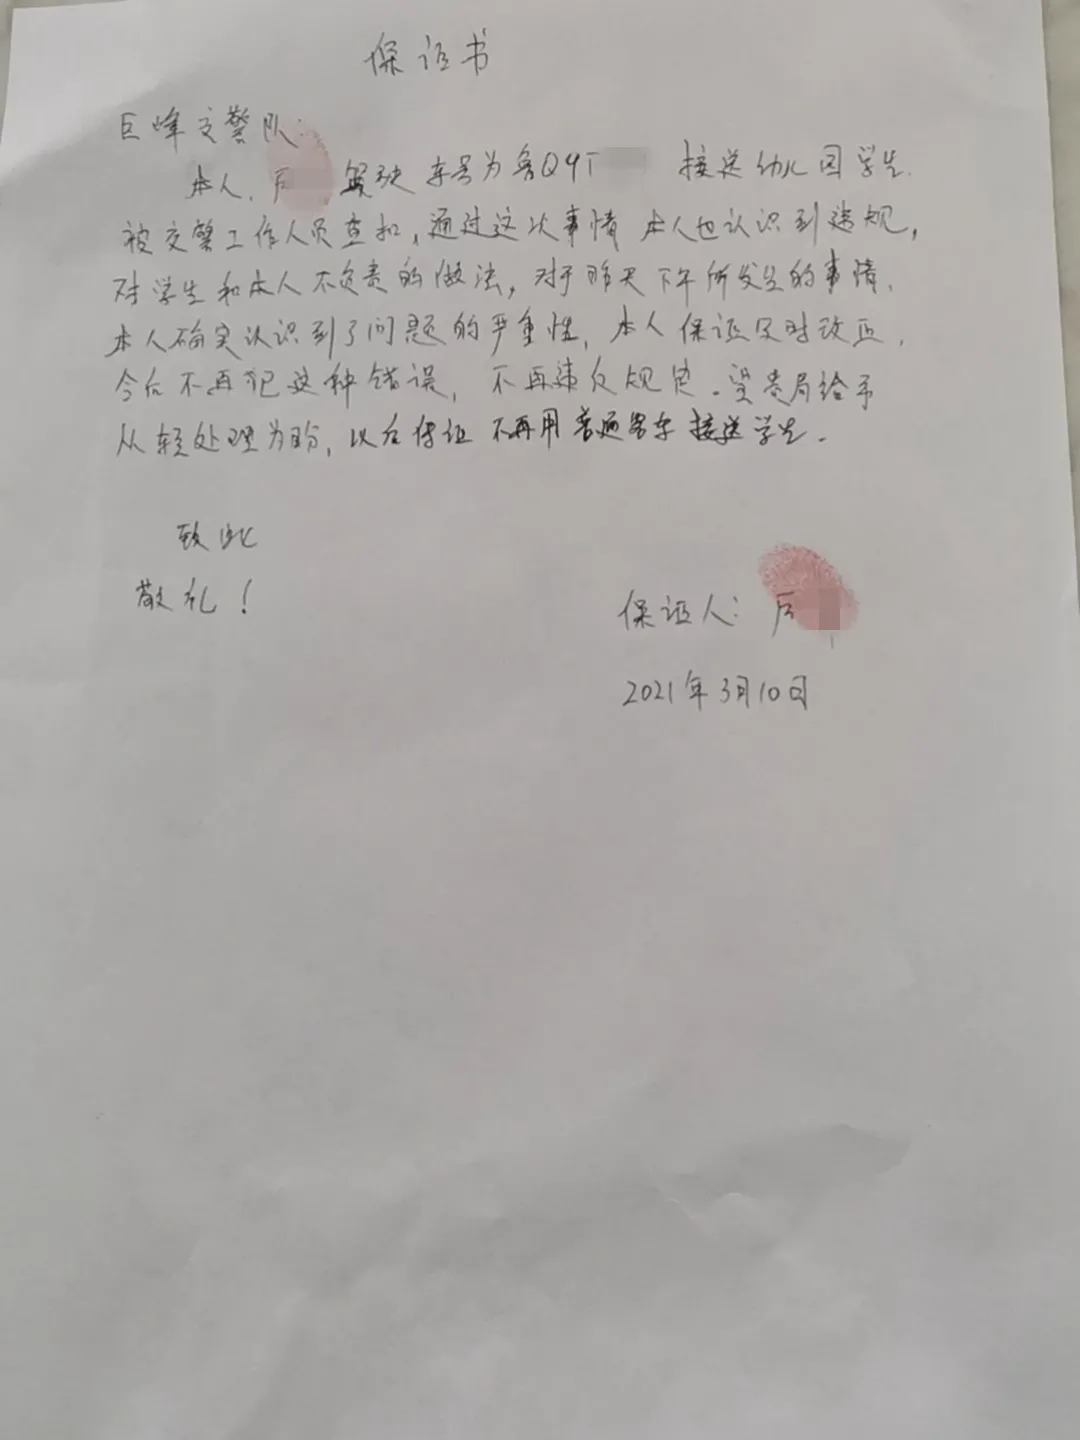 保证书
巨峰交警队：
本人，驾驶车号为鲁Q9T 接送幼儿园学生.
被交警工作人员查扣，通过这次事情 本人也认识到违规，
对学生和本人不负责的做法，对于昨天下午所发生的事情.
本人确实认识到了问题的严重性，本人保证及时改正，
今后不再犯这种错误，不再违反规定.望贵局给予
从轻处理为盼，以后保证 不再用普通客车接送学生.
致此
敬礼！
保证人：
2021年3月10日